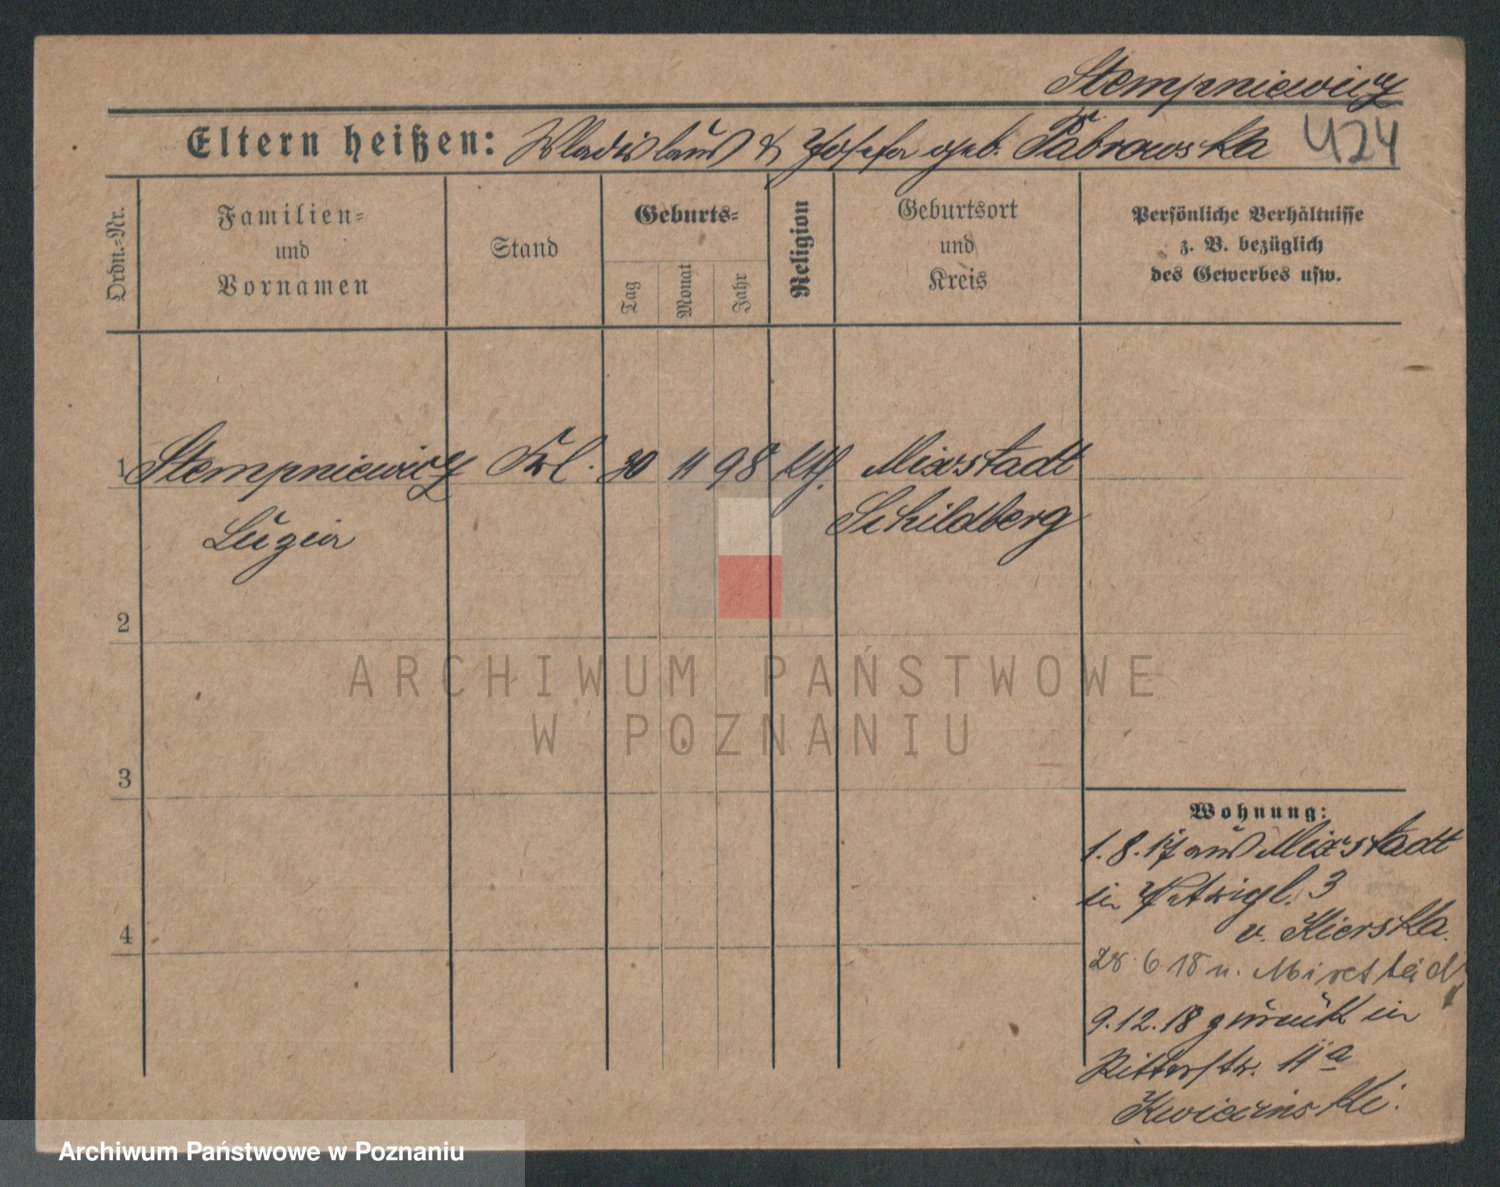 Stempniewicz
Eltern heißen: Wladislaus & Josefa geb. Fabrowska 424
Ordn.-Nr.
Familien-
und
Vornamen
Stand
Geburts-
Tag
Monat
Jahr
Religion
Geburtsort
und
Kreis
Persönliche Verhältnisse
z. B. bezüglich
des Gewerbes usw.
1 Stempniewicz Frl. 30 11 98 kth. Mixstadt
Luzia Schildberg
2
3
4
Wohnung:
1.8.17 aus Mixstadt
in 3
v. Kierska
28 6 18 n. Mixstadt
9.12.18 zurück in
Ritterstr. 11a
Kwiecinski.
ARCHIWUM PAŃSTWOWE
W POZNANIU
Archiwum Państwowe w Poznaniu